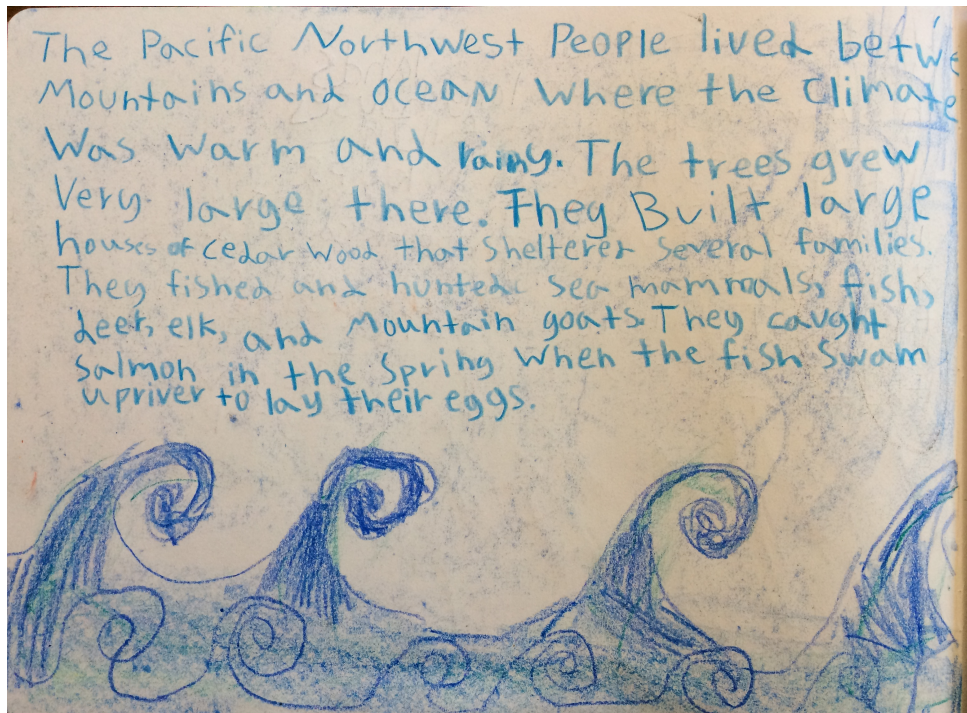 The Pacific Northwest People lived betwe
Mountains and ocean where the Climate
Was warm and rainy. The trees grew
Very large there. They Built large
houses of cedar wood that sheltered several families.
They fished and hunted sea mammals, fish,
deer, elk, and Mountain goats. They caught
salmon in the Spring when the fish swam
upriver to lay their eggs.